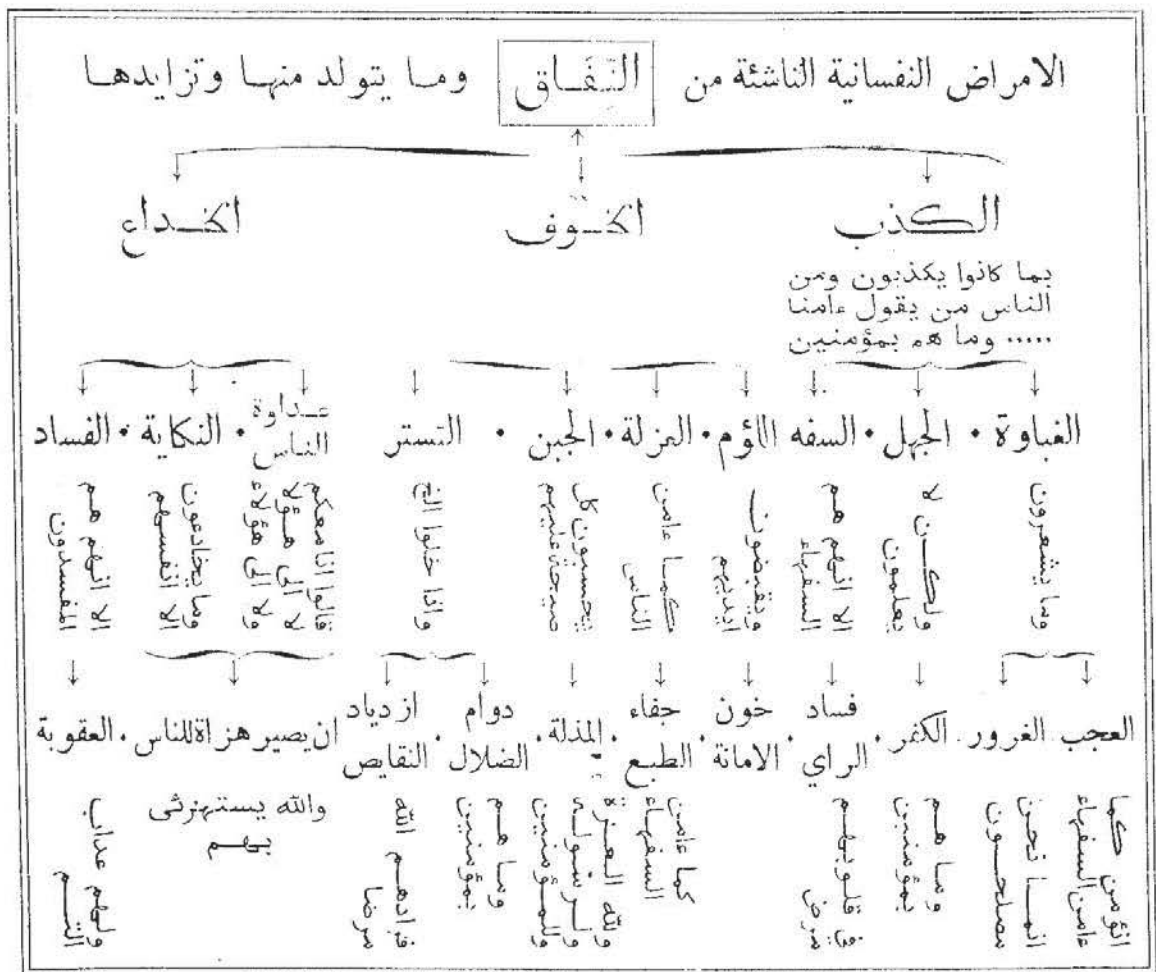 الامراض النفسانية الناشئة من النّفَاق وما يتولد منها وتزايدها
الكذب
الخوف
الخداع
بما كانوا يكذبون ومن
الناس من يقول ءامنا
..... وما هم بمؤمنين
الغباوة . الجهل . السفه . اللؤم . العزلة . الجبن . التستر
عداوة
الناس . النكاية . الفساد
وما يشعرون
ولكن لا
يعلمون
الا انهم هم
السفهاء
ويقبضون
ايديهم
كما ءامن
الناس
يحسبون كل
صيحة عليهم
واذا خلوا الخ
قالوا انا معكم
لا الى هؤلا
ولا الى هؤلاء
وما يخادعون
الا انفسهم
الا انهم هم
المفسدون
العجب . الغرور . الكفر .
فساد
الراي .
خون
الامانة .
جفاء
الطبع .
المذلة .
دوام
الضلال .
ازدياد
النقايص .
ان يصير هزاة للناس . العقوبة
انؤمن كما
ءامن السفهاء
انما نحن
مصلحون
وما هم
بمؤمنين
في قلوبهم
مرض
كما ءامن
السفهاء
ولله العزة
ولرسوله
وللمؤمنين
وما هم
بمؤمنين
فزادهم الله
مرضا
والله يستهزئى
بهم
ولهم عذاب
اليم